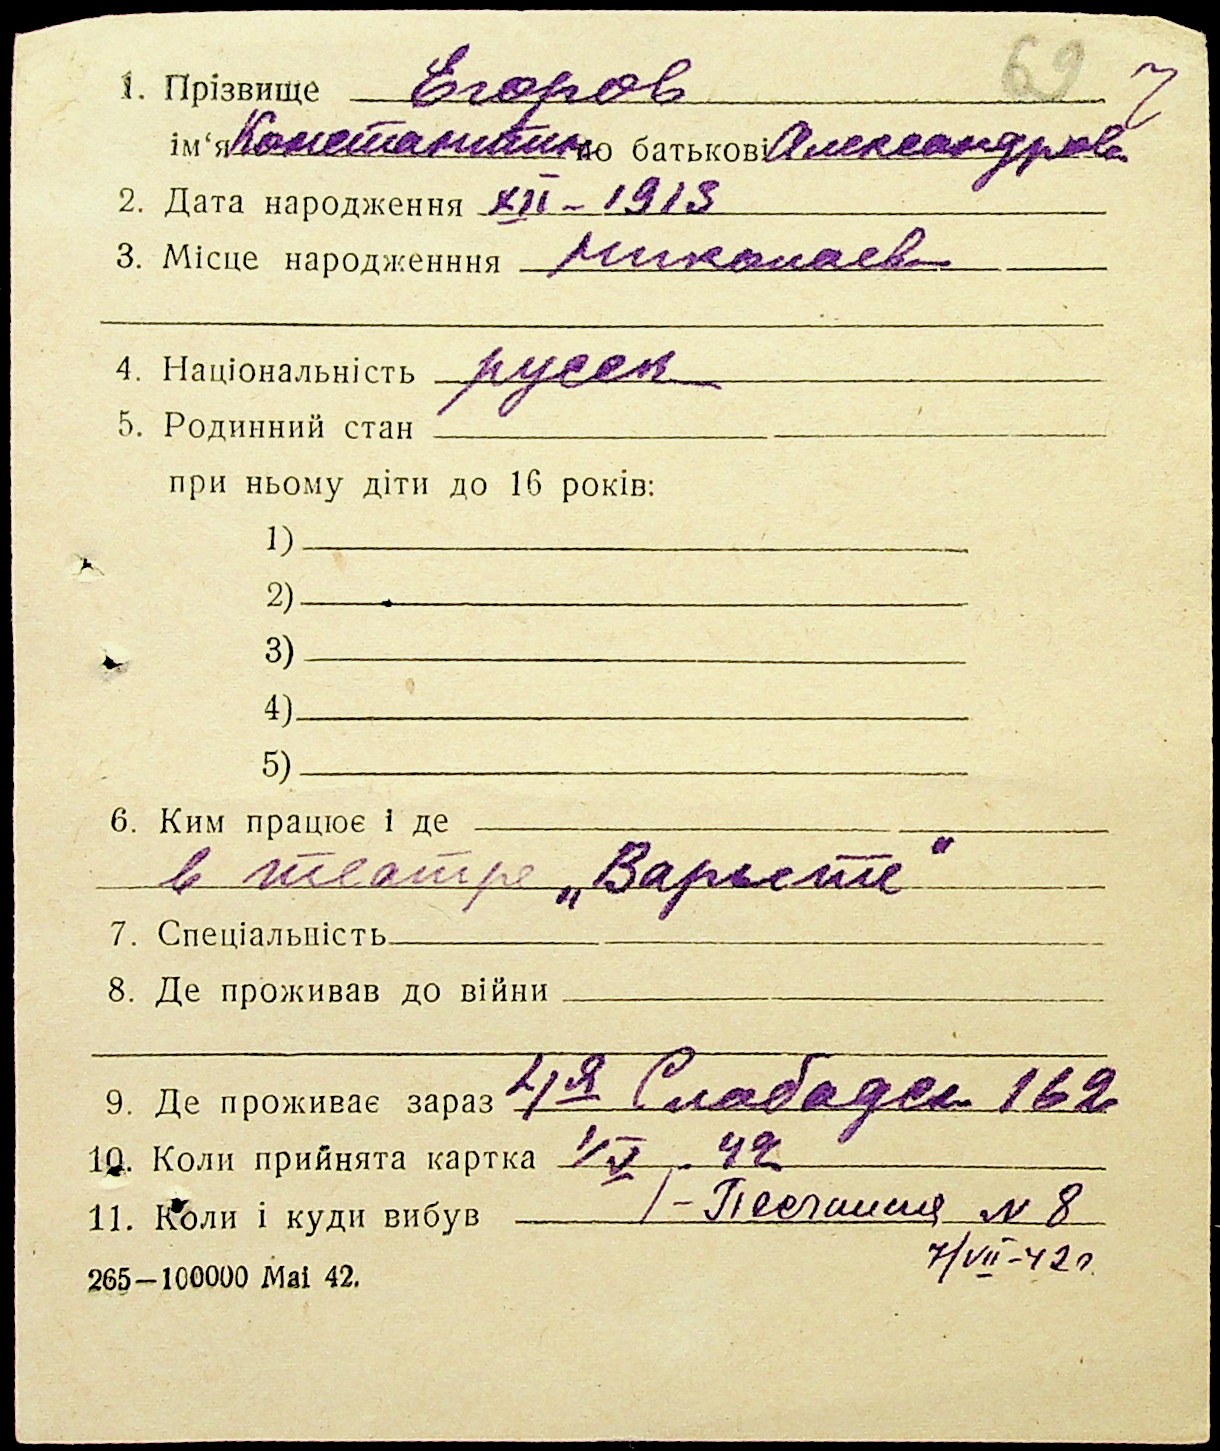 69 7
1. Прізвище Егоров
ім‘я Константин по батькові Александров.
2. Дата народження XII – 1913
3. Місце народженння Николаев
4. Національність русск
5. Родинний стан
при ньому діти до 16 років:
1)
2)
3)
4)
5)
6. Ким працює і де
в театре „Варьете“
7. Спеціальність
8. Де проживав до війни
9. Де проживає зараз 4я Слабодск 162
10. Коли прийнята картка 1/V . 42
11. Коли і куди вибув 1 – Песчаная N 8
7/VII–42г.
265—100000 Mai 42.